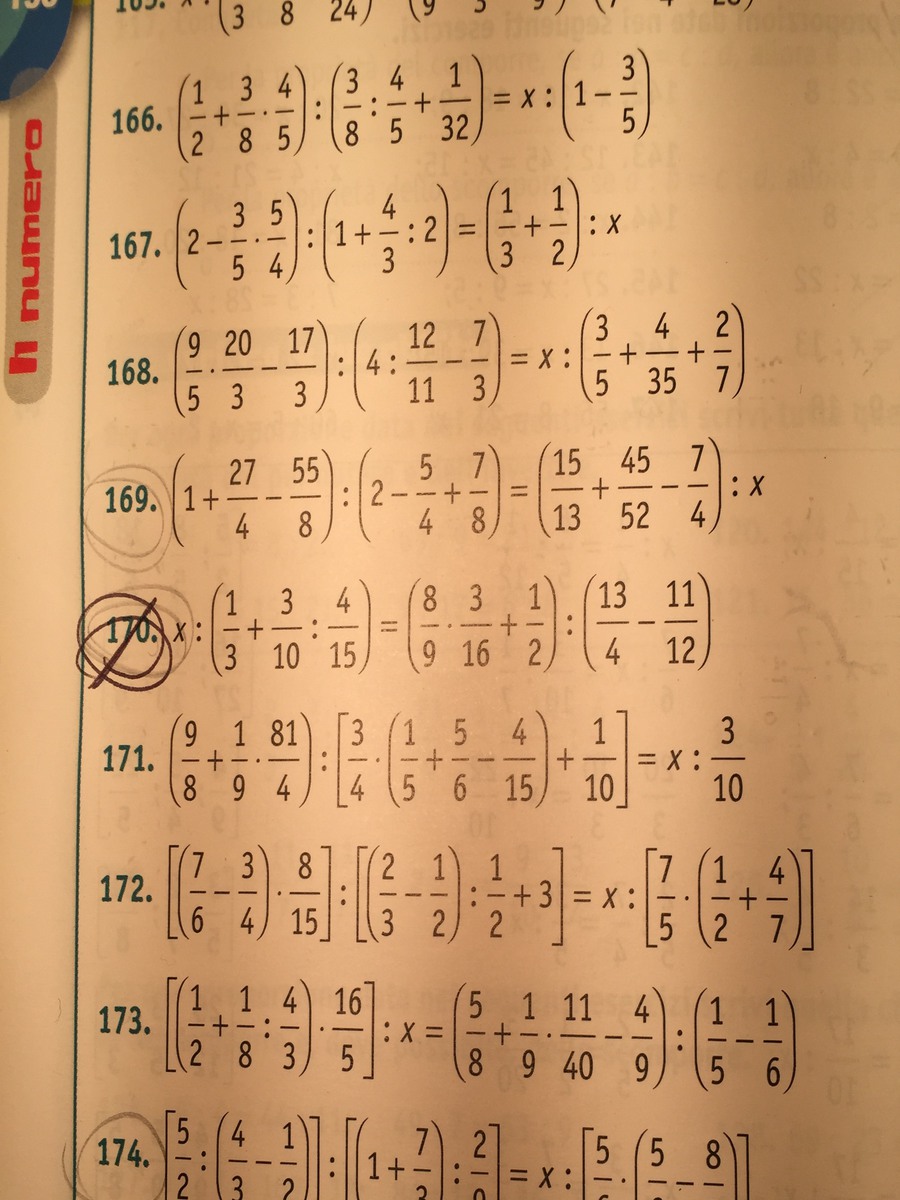 166. (1/2 + 3/8 · 4/5) : (3/8 : 4/5 + 1/32) = x : (1 − 3/5)
167. (2 − 3/5 · 5/4) : (1 + 4/3 : 2) = (1/3 + 1/2) : x
168. (9/5 · 20/3 − 17/3) : (4 : 12/11 − 7/3) = x : (3/5 + 4/35 + 2/7)
169. (1 + 27/4 − 55/8) : (2 − 5/4 + 7/8) = (15/13 + 45/52 − 7/4) : x
170. x : (1/3 + 3/10 : 4/15) = (8/9 · 3/16 + 1/2) : (13/4 − 11/12)
171. (9/8 + 1/9 · 81/4) : [3/4 · (1/5 + 5/6 − 4/15) + 1/10] = x : 3/10
172. [(7/6 − 3/4) · 8/15] : [(2/3 − 1/2) : 1/2 + 3] = x : [7/5 · (1/2 + 4/7)]
173. [(1/2 + 1/8 : 4/3) · 16/5] : x = (5/8 + 1/9 · 11/40 − 4/9) : (1/5 − 1/6)
174. [5/2 : (4/3 − 1/2)] : [(1 + 7/3) : 2 ] = x : [5 · (5 − 8)]
numero